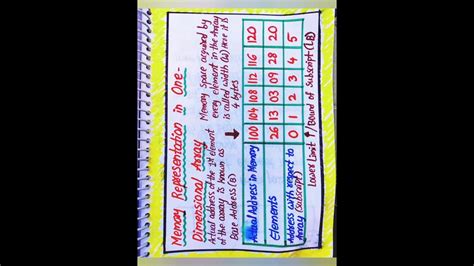 Memory Representation in One-
Dimensional Array
Actual address of the 1st element
of the array is known as
Base Address (B)
Memory Space acquired by
every element in the Array
is called width (W) Here it is
4 bytes
Actual Address in Memory 100 104 108 112 116 120
Elements 26 13 03 09 28 20
Address with respect to Array (Subscript) 0 1 2 3 4 5
Lower Limit /Bound of Subscript (LB)